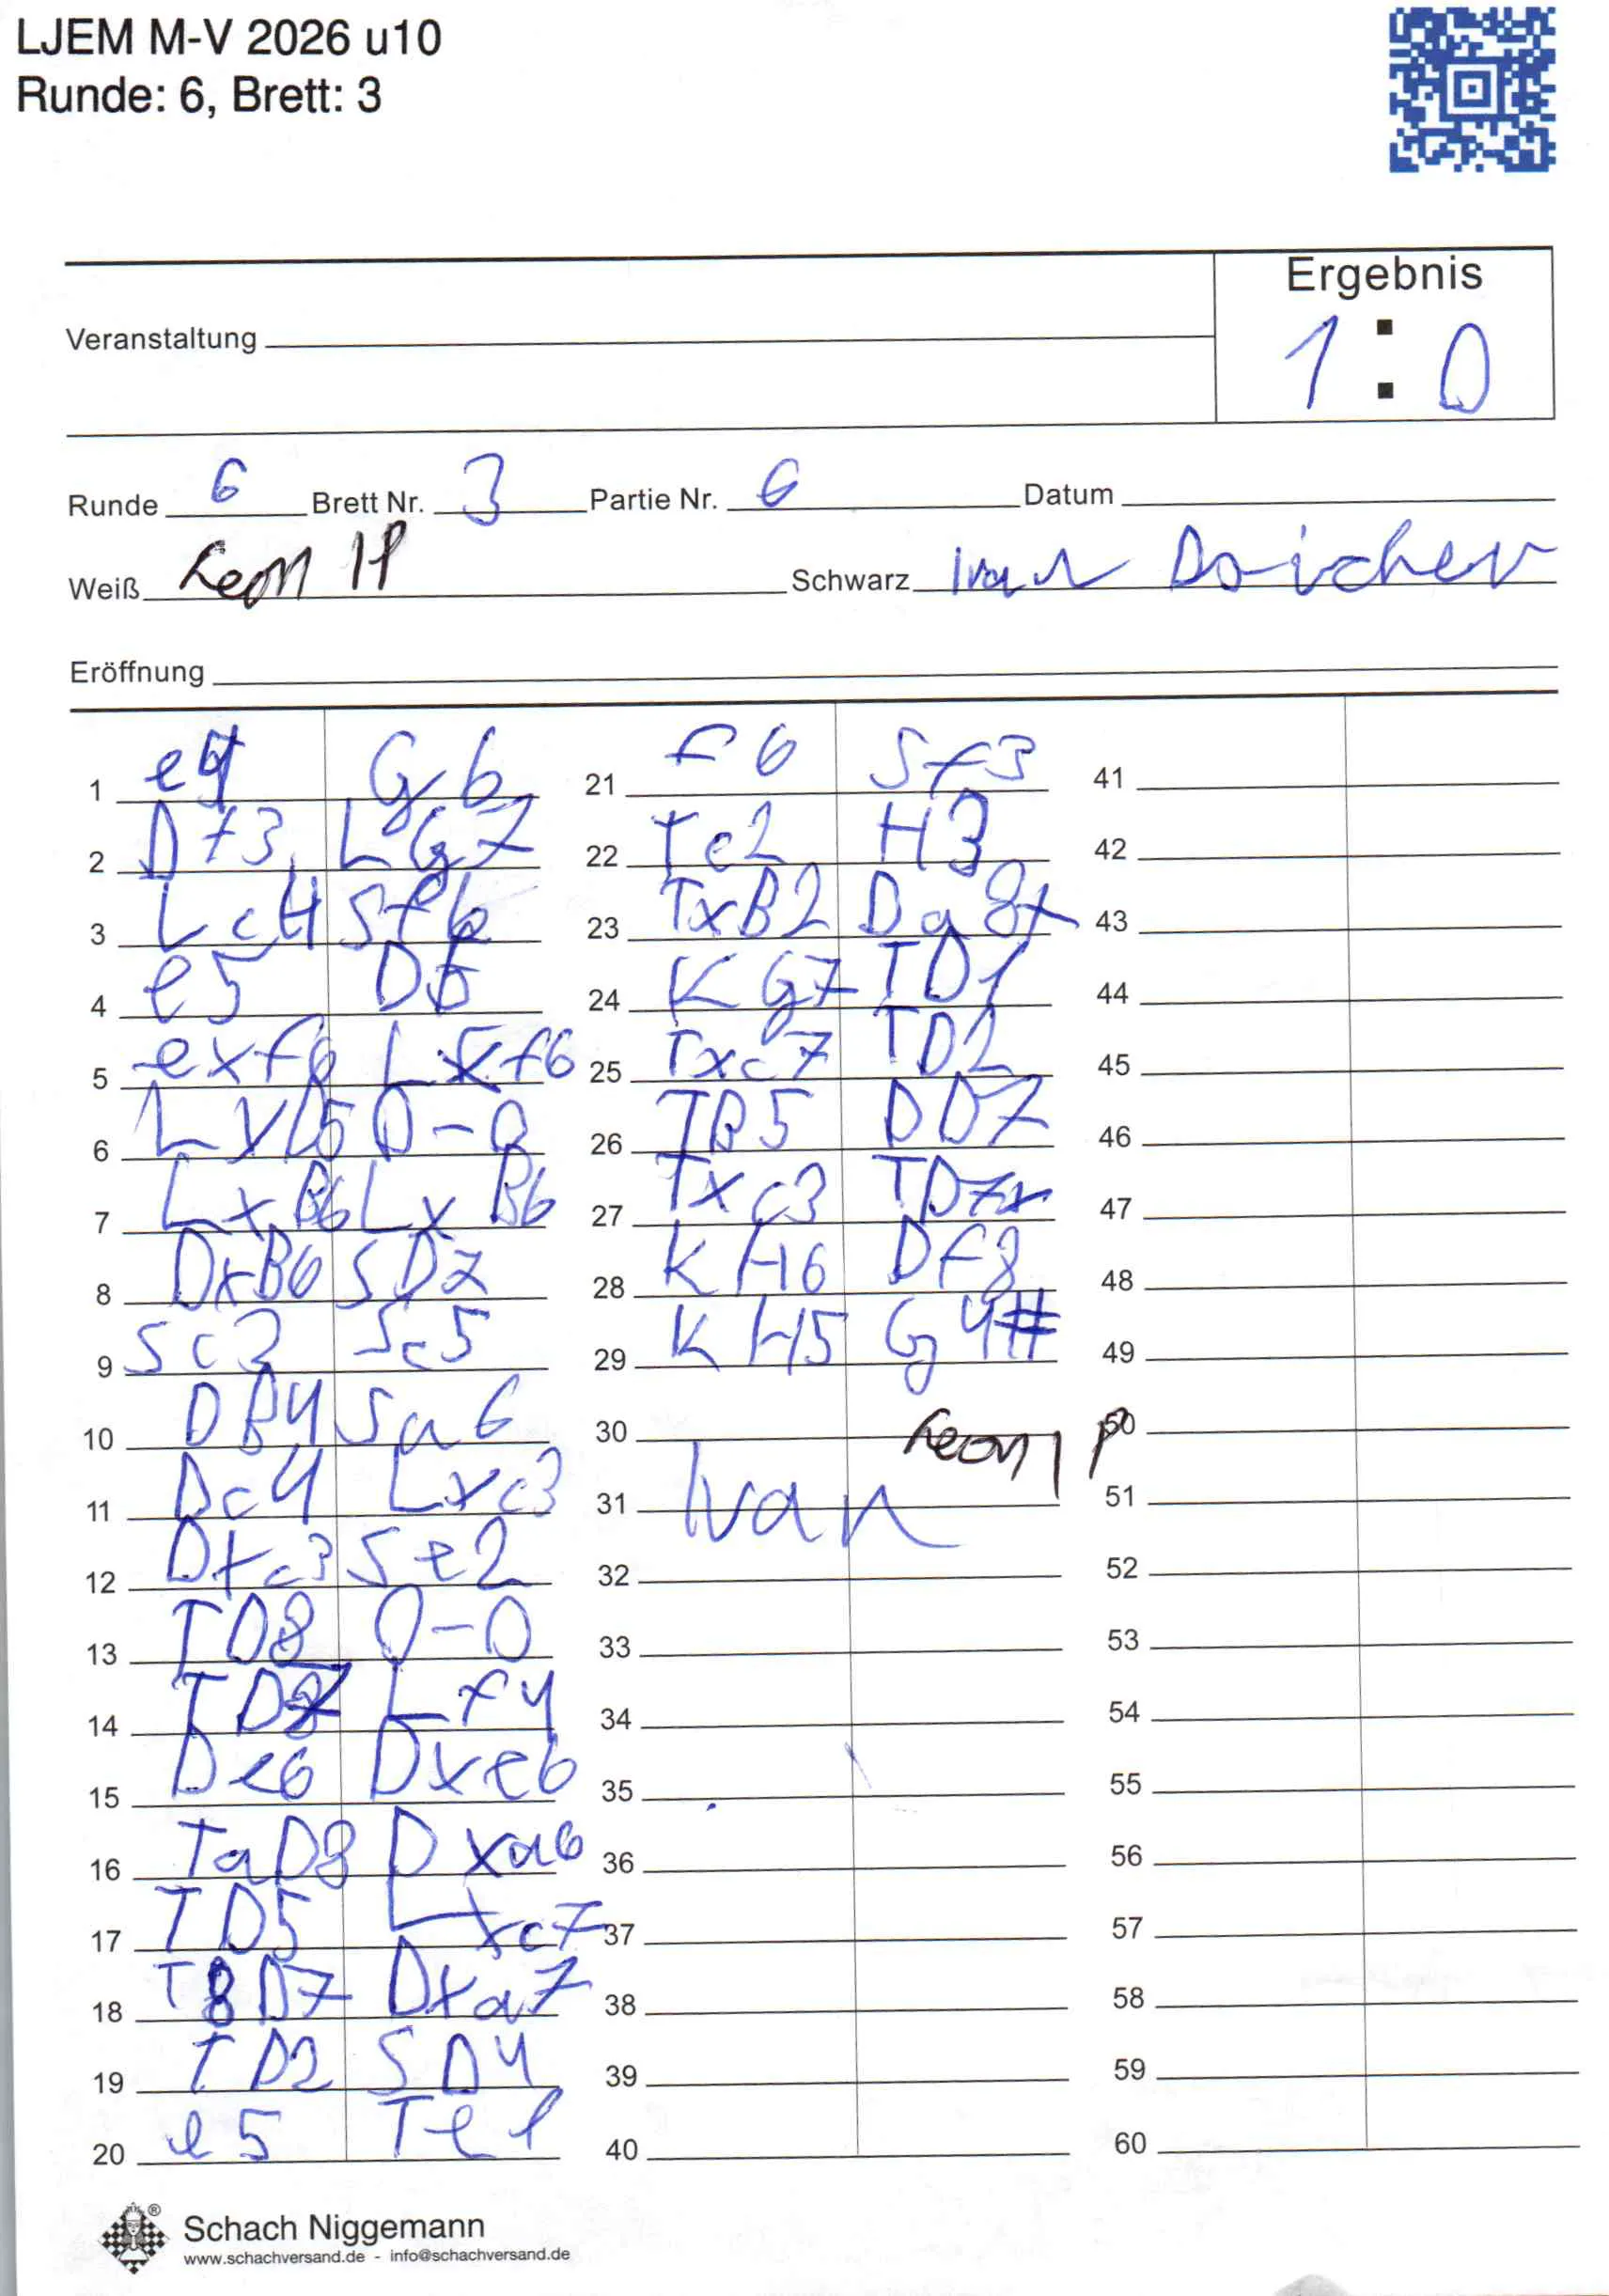 LJEM M-V 2026 u10
Runde: 6, Brett: 3
Ergebnis
Veranstaltung
1 : 0
Runde 6 Brett Nr. 3 Partie Nr. 6 Datum
Weiß Leon Schwarz Ivan
Eröffnung
1 e4 G6
2 Df3 LG7
3 Lc4 Sf6
4 e5 D5
5 exf6 Lxf6
6 LxD5 0-0
7 LxB6 LxB6
8 DxB6 SD7
9 Sc3 Sc5
10 DB4 Sa6
11 Dc4 Lxc3
12 Dxc3 Se2
13 TD8 0-0
14 TD7 Lf4
15 De6 Dxe6
16 TaD8 Dxa6
17 TD5 Lxc7
18 T8D7 Dxa7
19 TD2 SD4
20 e5 Te1
21 f6 Sf3
22 Te2 H3
23 TxB2 Da8+
24 KG7 TD1
25 Txc7 TD2
26 TB5 DD7
27 Txc3 TD7x
28 KH6 DF8
29 KH5 G4#
30 Leon P
31 Ivan
32
33
34
35
36
37
38
39
40
41
42
43
44
45
46
47
48
49
50
51
52
53
54
55
56
57
58
59
60
Schach Niggemann
www.schachversand.de - info@schachversand.de